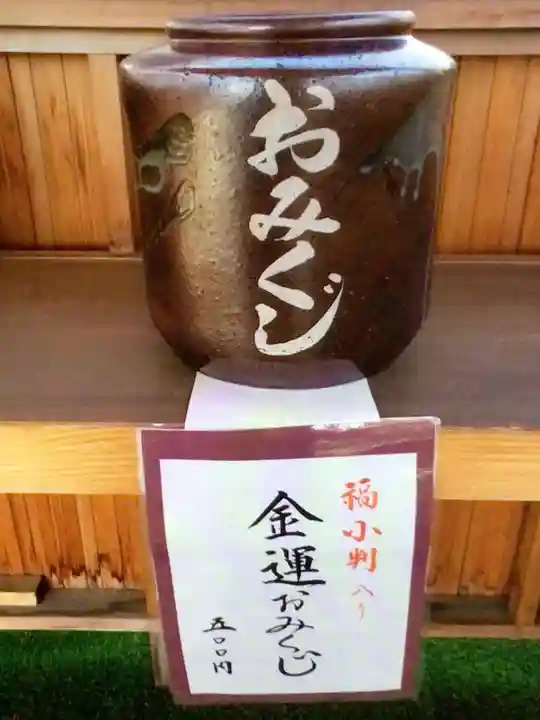 おみくじ
福小判入り
金運おみくじ
五〇〇円